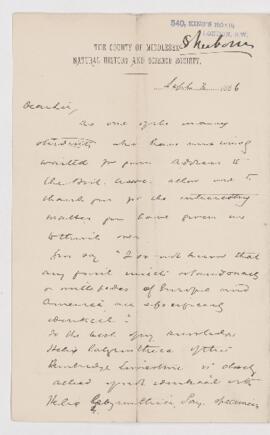 540, KING'S ROAD
LONDON, S.W.
THE COUNTY OF MIDDLESEX
NATURAL HISTORY AND SCIENCE SOCIETY.
Sept 2 1886
Dear Sir,
As one of the many
students who have
waited for your Address to
the Brit. Assoc. allow me to
thank you for the interesting
matter you have given us
to think over
You say "I do not know that
any fossil
of Europe and
America are specifically
identical."
To the best of my knowledge
Helix labyrinthica of the
Bembridge Limestone is closely
allied if not identical with
Helix labyrinthica, Say. specimens